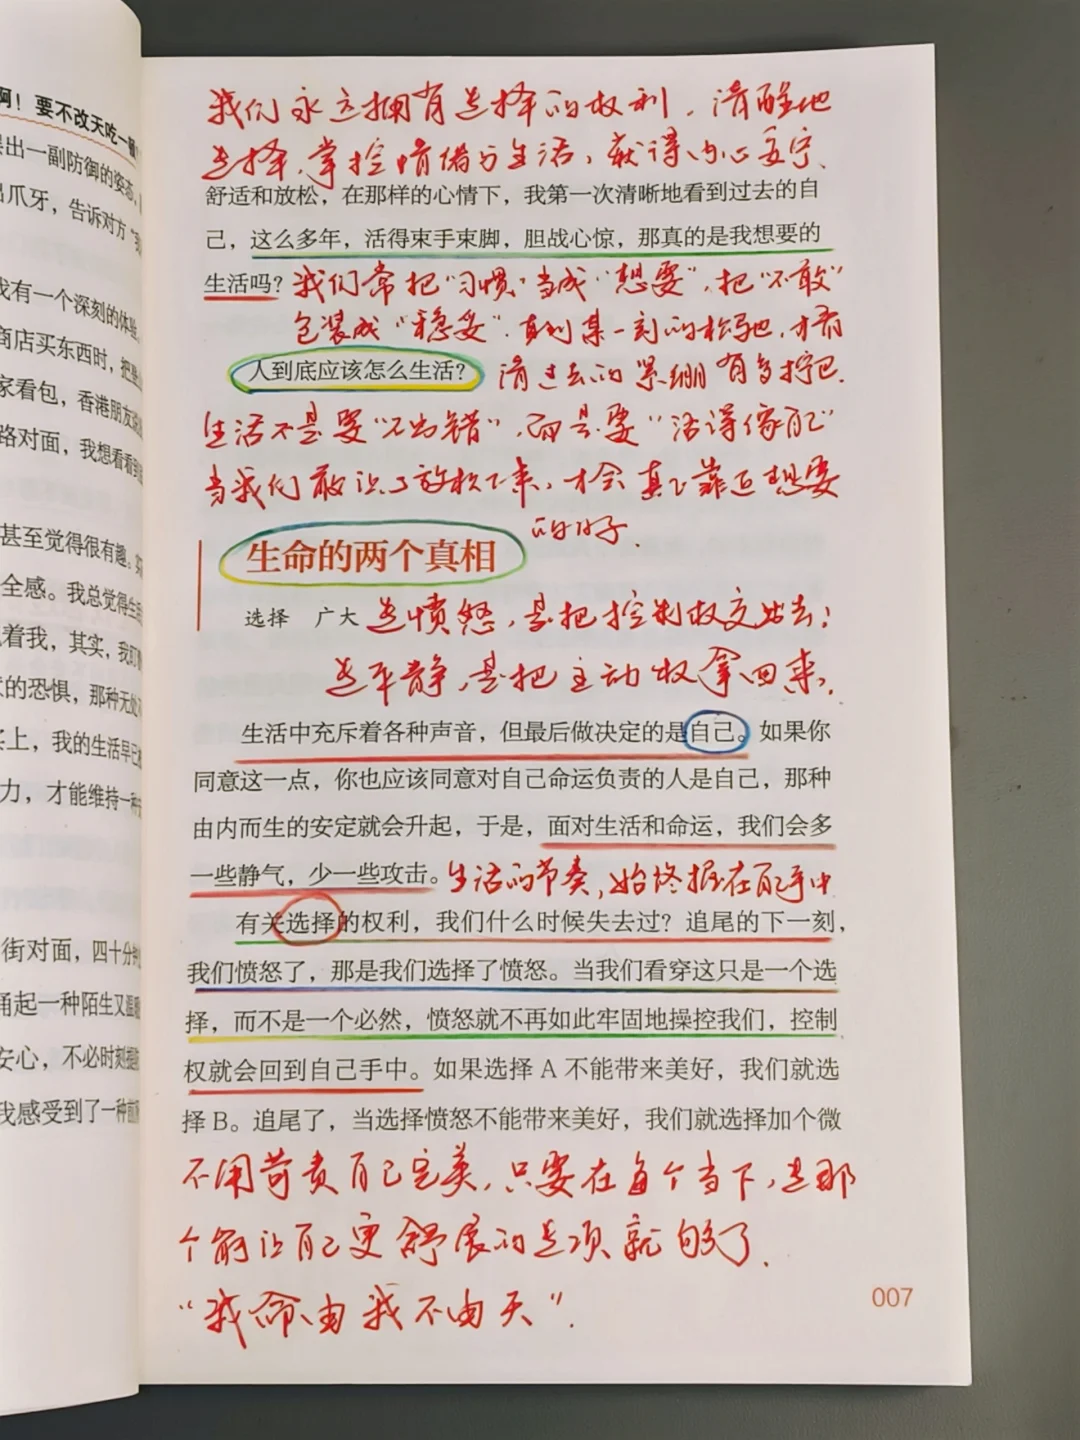 啊！要不改天吃一顿
出一副防御的姿态，
出爪牙，告诉对方
我有一个深刻的体验，
商店买东西时，把
家看包，香港朋友说
路对面，我想看看到
甚至觉得很有趣。
全感。我总觉得生
着我，其实，我
的恐惧，那种无处
实上，我的生活早已
力，才能维持一种
街对面，四十分钟
涌起一种陌生又温
安心，不必时刻
我感受到了一种前所
我们永远拥有选择的权利，清醒地
选择，掌控情绪与生活，获得内心安宁、
舒适和放松，在那样的心情下，我第一次清晰地看到过去的自
己，这么多年，活得束手束脚，胆战心惊，那真的是我想要的
生活吗？我们常把“习惯”当成“想要”，把“不敢”
包装成“稳妥”，直到某一刻的松弛，才看
人到底应该怎么生活？ 清过去的紧绷有多拧巴。
生活不是要“不出错”，而是要“活得像自己”
当我们敢让自己放松下来，才会真正靠近想要
的日子。
生命的两个真相
选择 广大 选愤怒，是把控制权交出去；
选平静，是把主动权拿回来。
生活中充斥着各种声音，但最后做决定的是自己。如果你
同意这一点，你也应该同意对自己命运负责的人是自己，那种
由内而生的安定就会升起，于是，面对生活和命运，我们会多
一些静气，少一些攻击。生活的节奏，始终握在自己手中
有关选择的权利，我们什么时候失去过？追尾的下一刻，
我们愤怒了，那是我们选择了愤怒。当我们看穿这只是一个选
择，而不是一个必然，愤怒就不再如此牢固地操控我们，控制
权就会回到自己手中。如果选择 A 不能带来美好，我们就选
择 B。追尾了，当选择愤怒不能带来美好，我们就选择加个微
不用苛责自己完美，只要在每个当下，选那
个能让自己更舒展的选项就够了。
“我命由我不由天”。
007